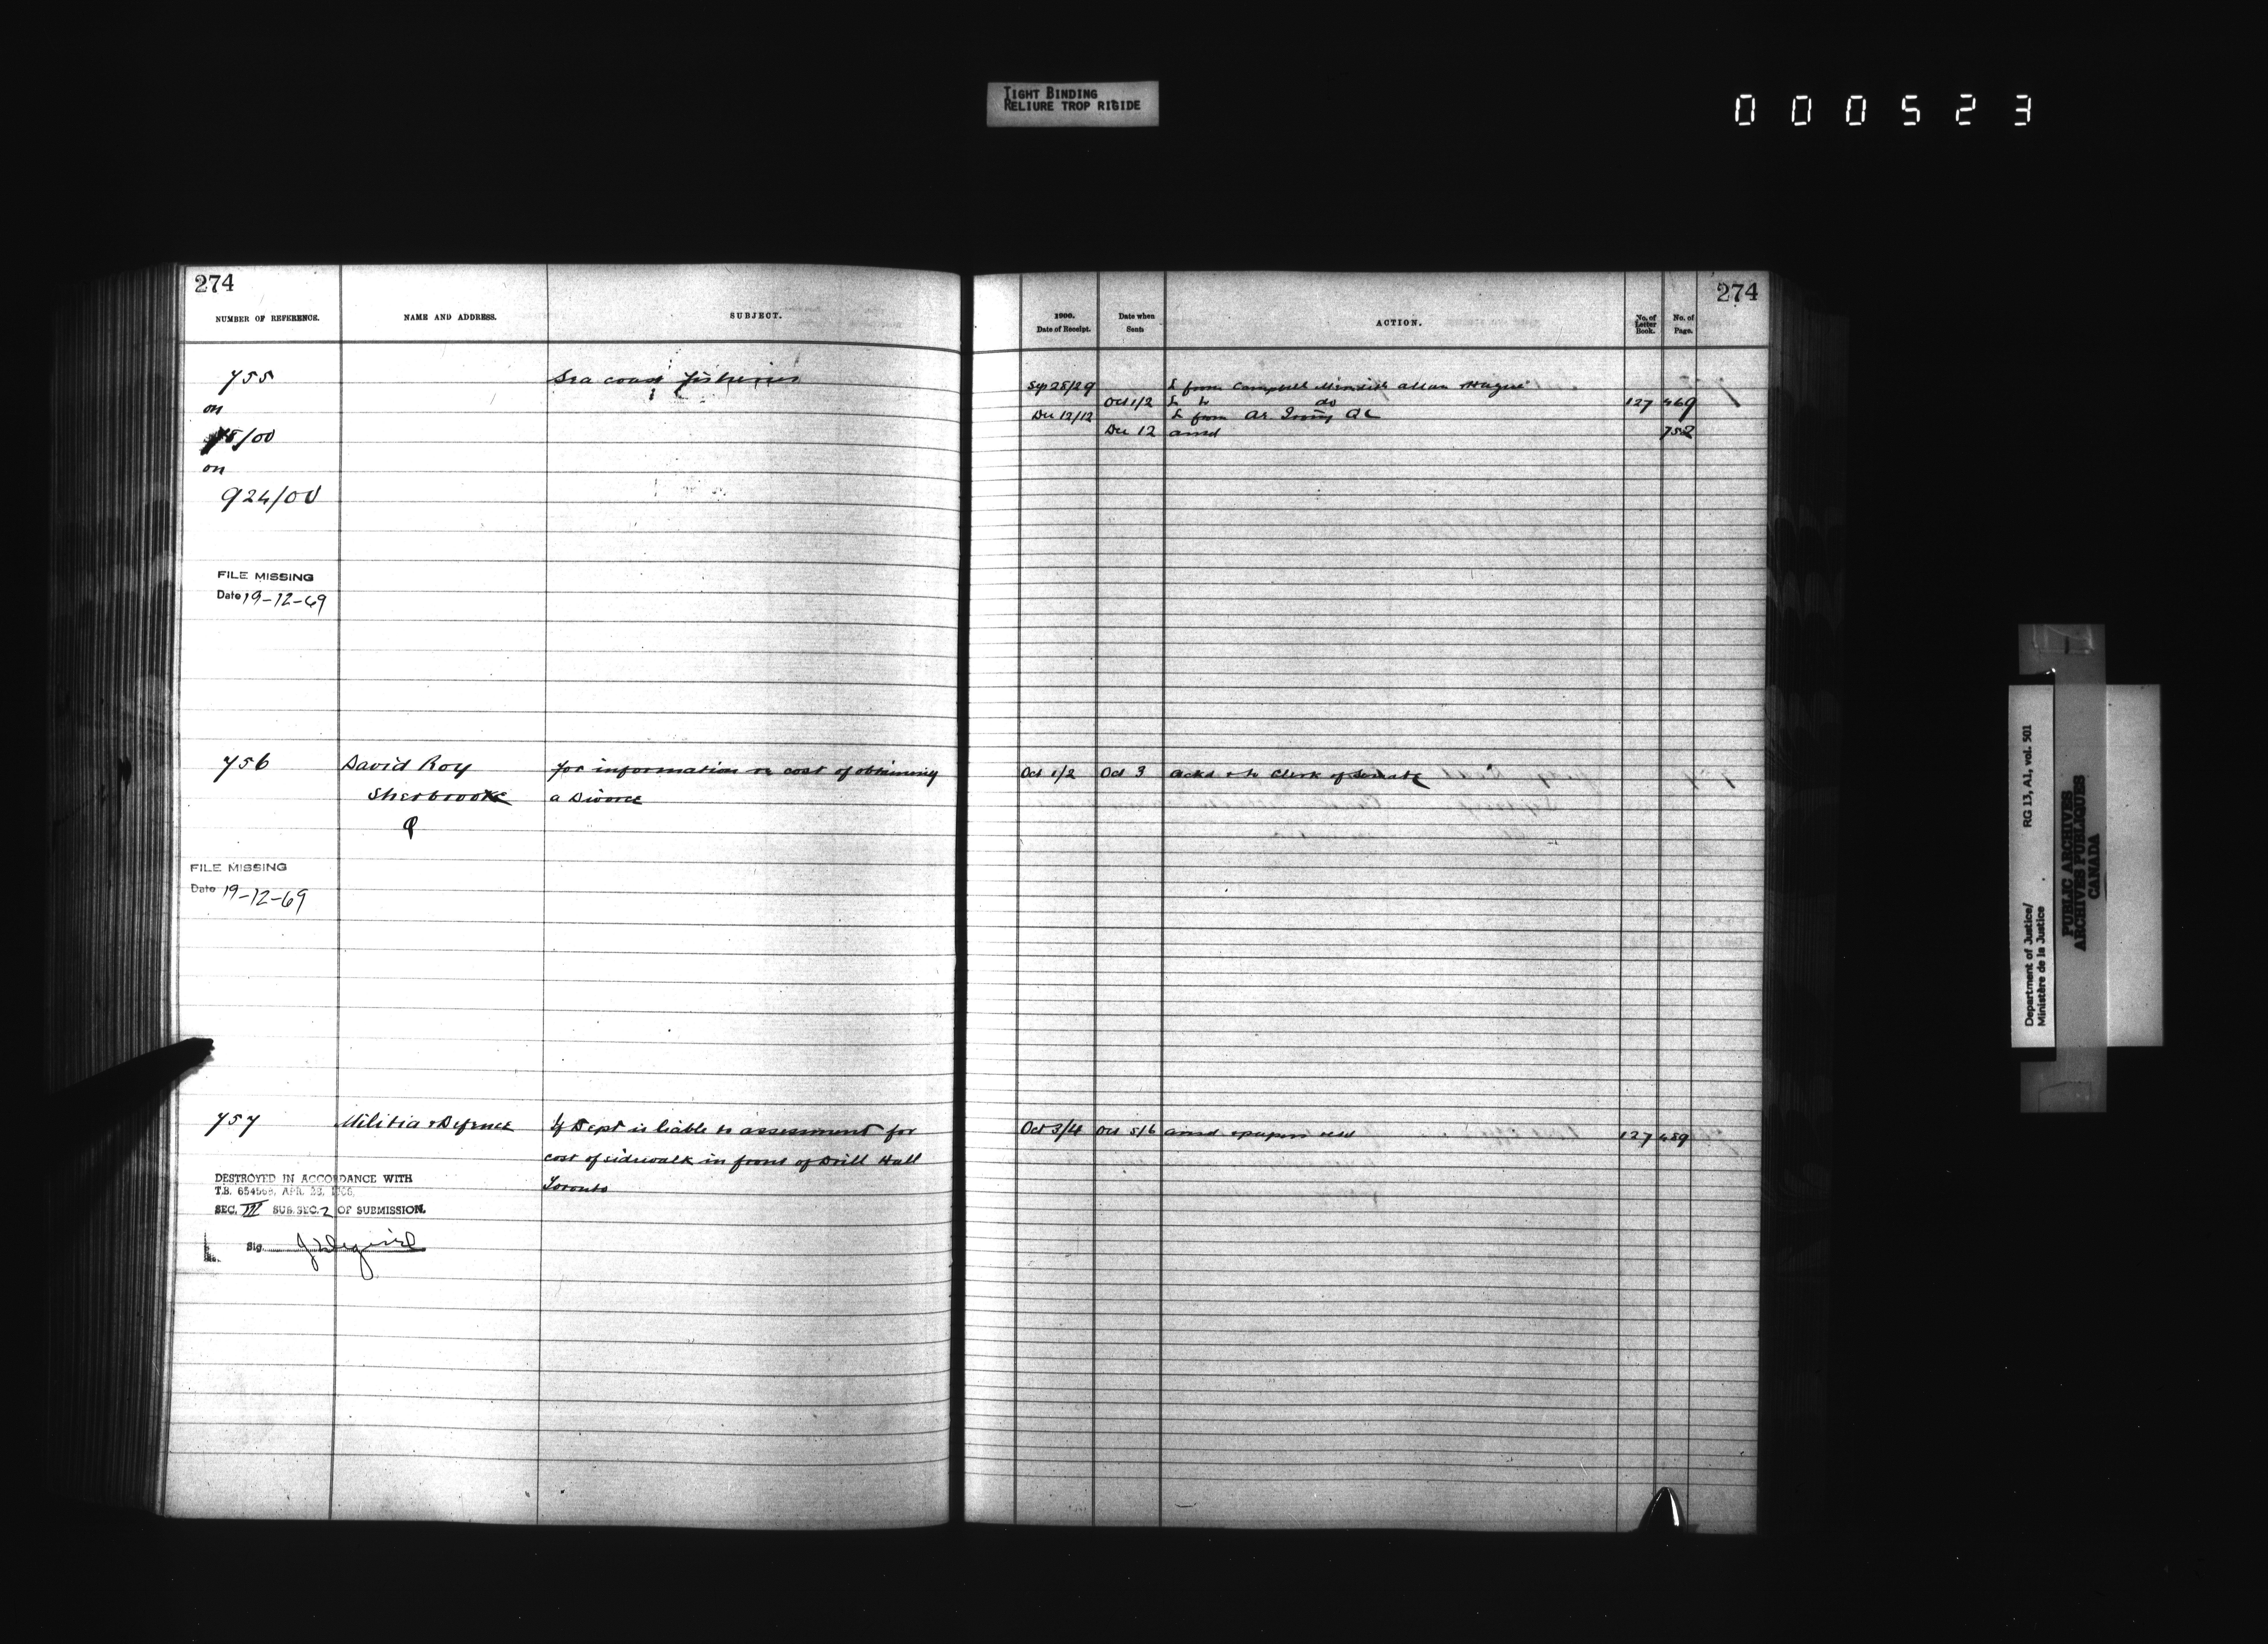 TIGHT BINDING
RELIURE TROP RIGIDE
000523
274
NUMBER OF REFERENCE.
NAME AND ADDRESS.
SUBJECT.
755
Sea coast fisheries
on
/00
on
924/00
FILE MISSING
Date 19-12-69
756
David Roy
for information re cost of obtaining
Sherbrooke
a Divorce
Q
FILE MISSING
Date 19-12-69
757
Militia & Defence
If Dept is liable to assessment for
cost of sidewalk in front of Drill Hall
Toronto
DESTROYED IN ACCORDANCE WITH
T.B. APR. 28,
SEC. III SUB. SEC. 2 OF SUBMISSION.
Sig.
274
1900.
Date of Receipt.
Date when
Sent
ACTION.
No. of
Letter
Book.
No. of
Page.
Sep 28/29
L from Campbell Meredith Allan & Hague
Oct 1/2
L to do
127
469
Dec 12/12
L from Ae. Irving QC
Dec 12
ansd
752
Oct 1/2
Oct 3
ackd & to Clerk of Senate
Oct 3/4
Oct 5/6
ansd & papers retd
127
489
Department of Justice/
Ministère de la Justice
RG 13, A1, vol. 501
PUBLIC ARCHIVES
ARCHIVES PUBLIQUES
CANADA